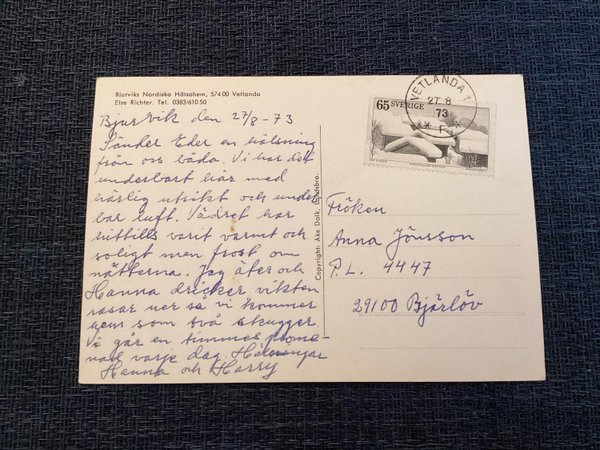 Bjurviks Nordiska Hälsohem, 574 00 Vetlanda
Else Richter. Tel. 0383/610 50
Bjurvik den 27/8-73
Sänder Eder en hälsning
från oss båda. Vi har det
underbart här med
härlig utsikt och under
bar luft. Vädret har
hittills varit varmt och
soligt men frost om
nätterna. Jag äter och
Hanna dricker vikten
rasar ner så vi kommer
hem som två skuggor.
Vi går en timmes prome-
nad varje dag. Hälsningar
Hanna och Harry
Copyright: Åke Dalk,
65 SVERIGE
VETLANDA 1
27. 8
73
Fröken
Anna Jönsson
P.L. 4447
29100 Bjärlöv